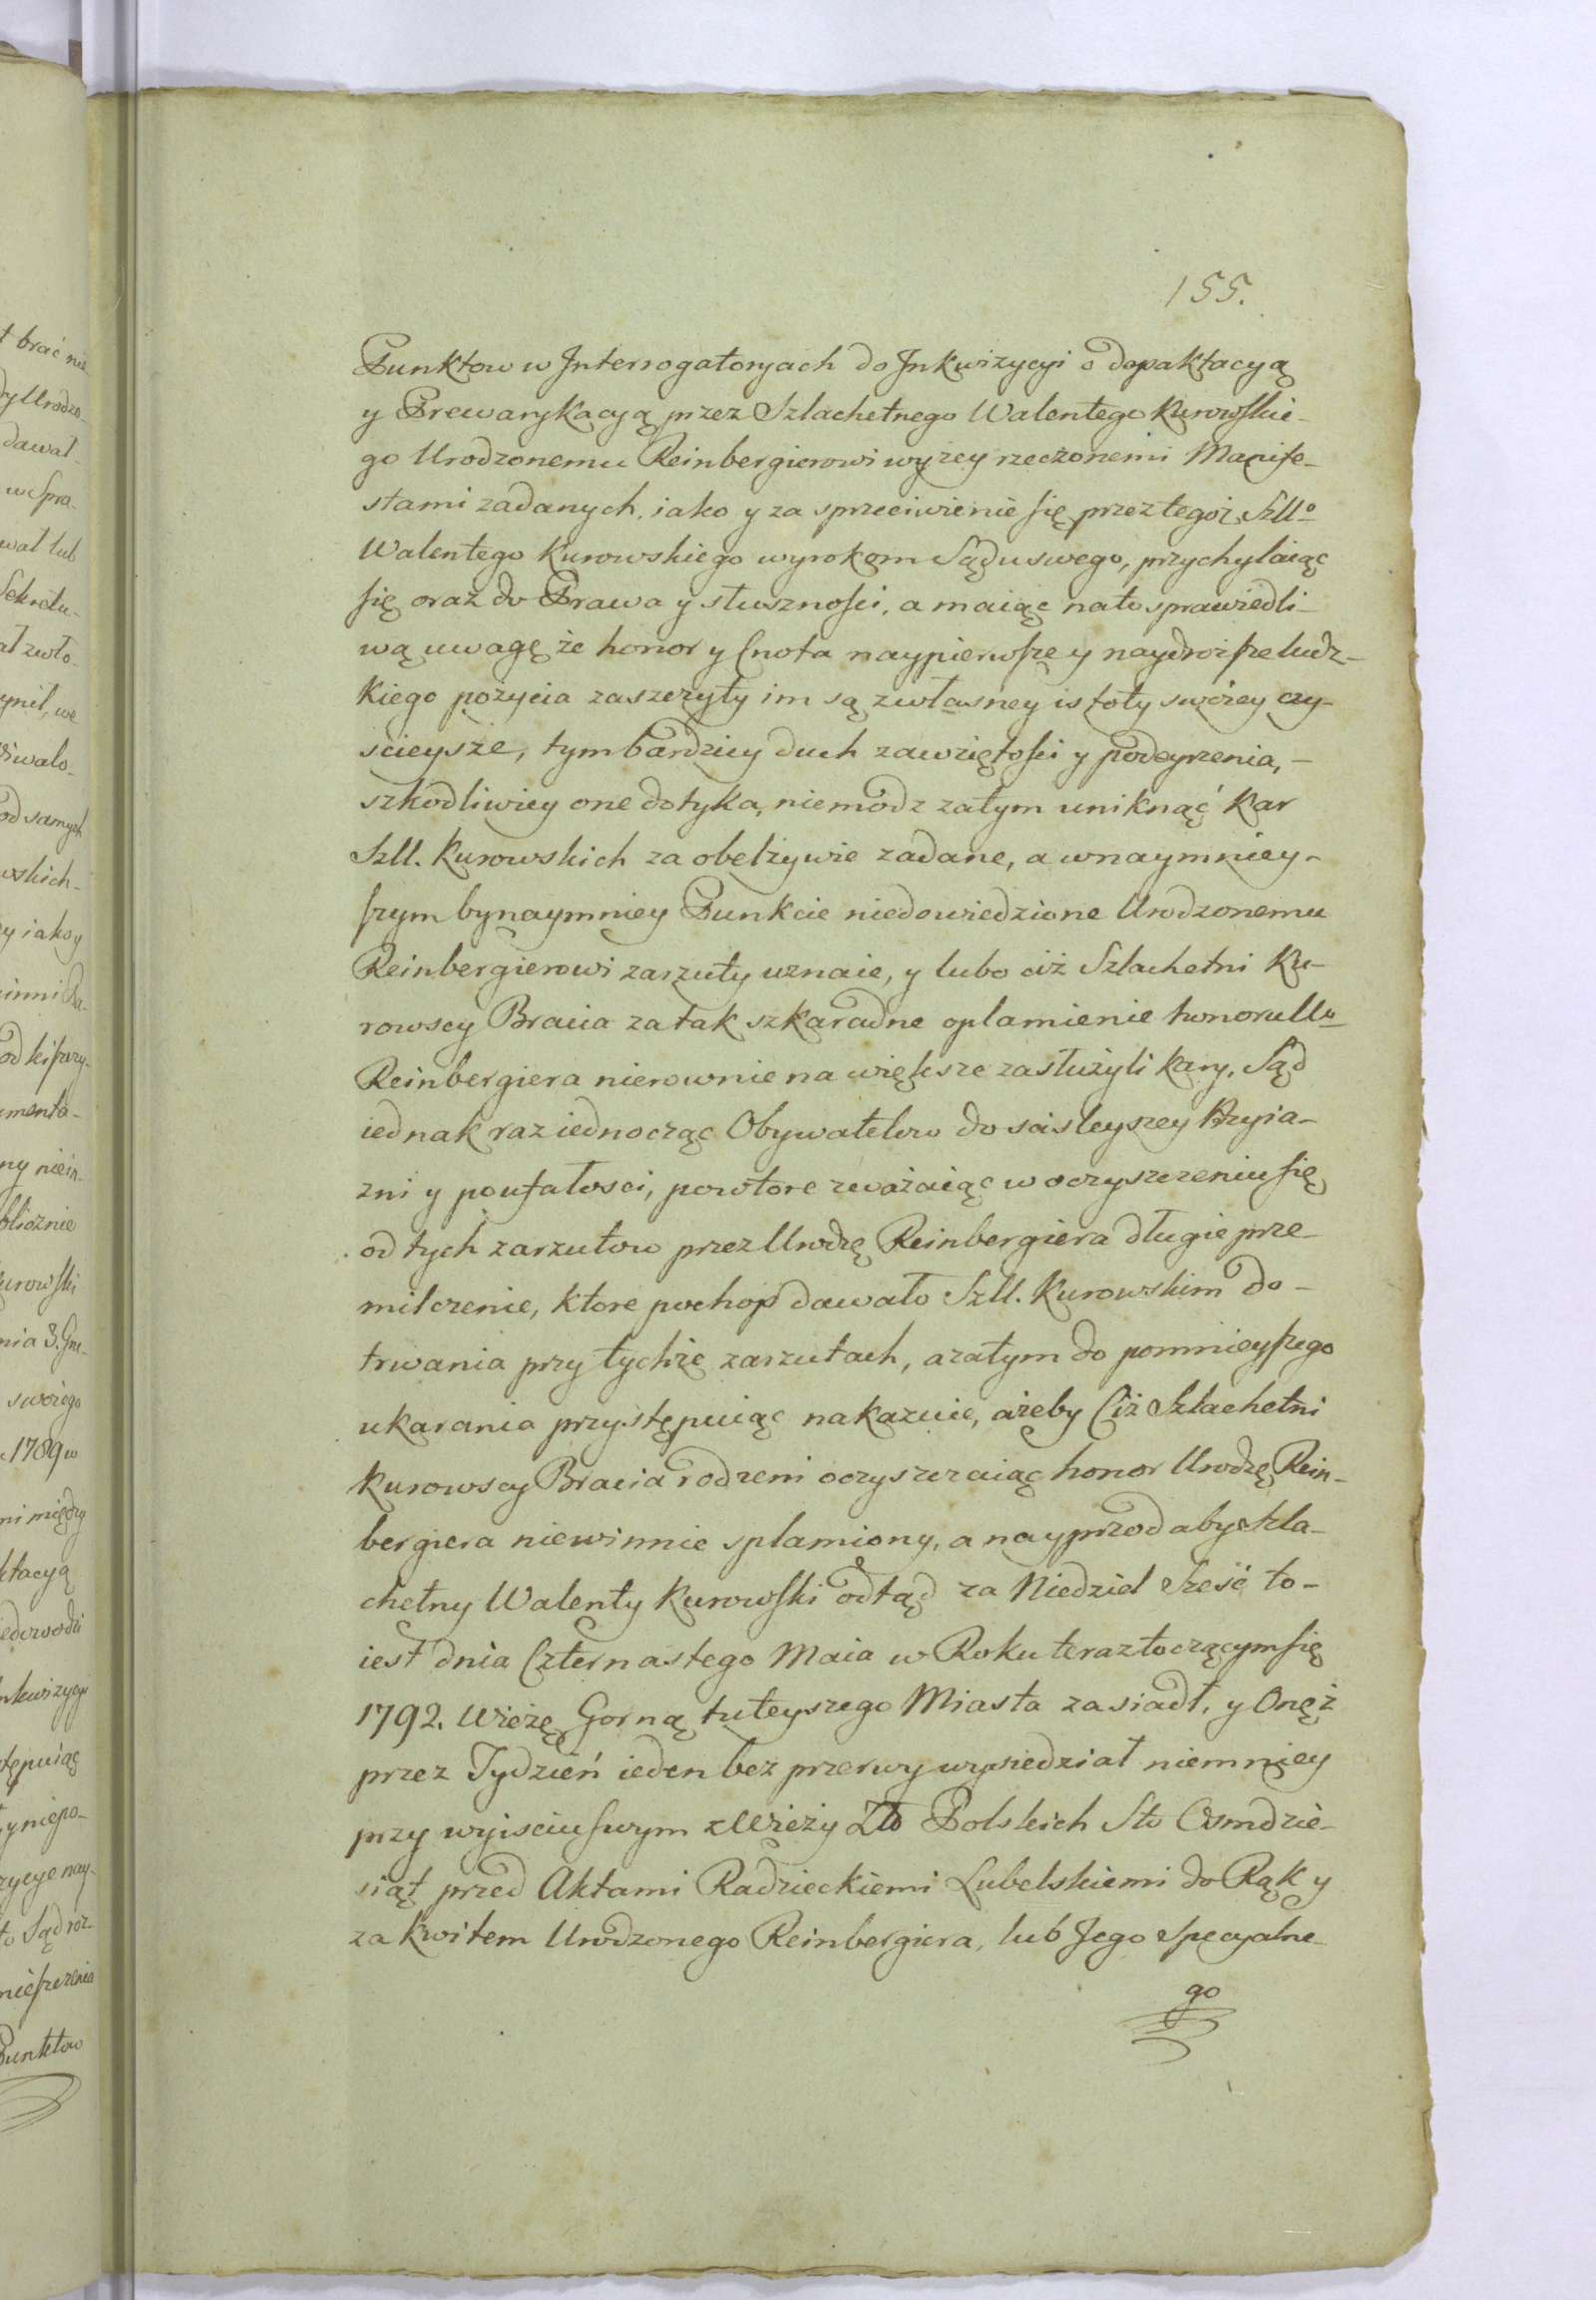 155.
Punktow w Interrogatoryach do Inkwizycyi o depaktacyą
y Prewarykacyą przez Szlachetnego Walentego Kurowskie-
go Urodzonemu Reinbergierowi wyżey rzeczonemi Manife-
stami zadanych, iako y za sprzeciwienie się przez tegoż Szllo
Walentego Kurowskiego wyrokom Sądu swego, przychylaiąc
się oraz do Prawa y słusznosci, a maiąc na to sprawiedli-
wą uwagę że honor y Cnota naypierwsze y naydroższe ludz-
kiego pożycia zaszczyty im są z własney istoty swoiey czy-
scieysze, tym bardziey duch zawziętości y podeyrzenia, -
szkodliwiey one dotyka, niemodz zatym uniknąć kar
Szll. Kurowskich za obelżywie zadane, a w naymniey-
szym bynaymniey Punkcie niedowiedzione Urodzonemu
Reinbergierowi zarzuty uznaie, y lubo ciż Szlachetni Ku-
rowscy Bracia za tak szkaradne oplamienie honoru Uo
Reinbergiera nierownie na większe zasłużyli kary, Sąd
iednak raz iednocząc Obywatelow do scisleyszey Przyia-
zni y poufałosci, powtore zważaiąc w oczyszczeniu się
od tych zarzutow przez Urodzo Reinbergiera długie prze-
milczenie, ktore pochop dawało Szll. Kurowskim do-
trwania przy tychże zarzutach, a zatym do pomnieyszego
ukarania przystępuiąc nakazuie, ażeby Ciż Szlachetni
Kurowscy Bracia rodzeni oczyszczaiąc honor Urodzo Rein-
bergiera niewinnie splamiony, a nayprzod aby Szla-
chetny Walenty Kurowski odtąd za Niedziel Sześć to-
iest dnia Czternastego Maia w Roku teraz toczącym się
1792. Wieżę Gorną tuteyszego Miasta zasiadł, y Onęż
przez Tydzień ieden bez przerwy wysiedział niemniey
przy wyisciu swym z Wieży Zło Polskich Sto Osmdzie-
siąt przed Aktami Radzieckiemi Lubelskiemi do Rąk y
za kwitem Urodzonego Reinbergiera, lub Jego specyalne-
go